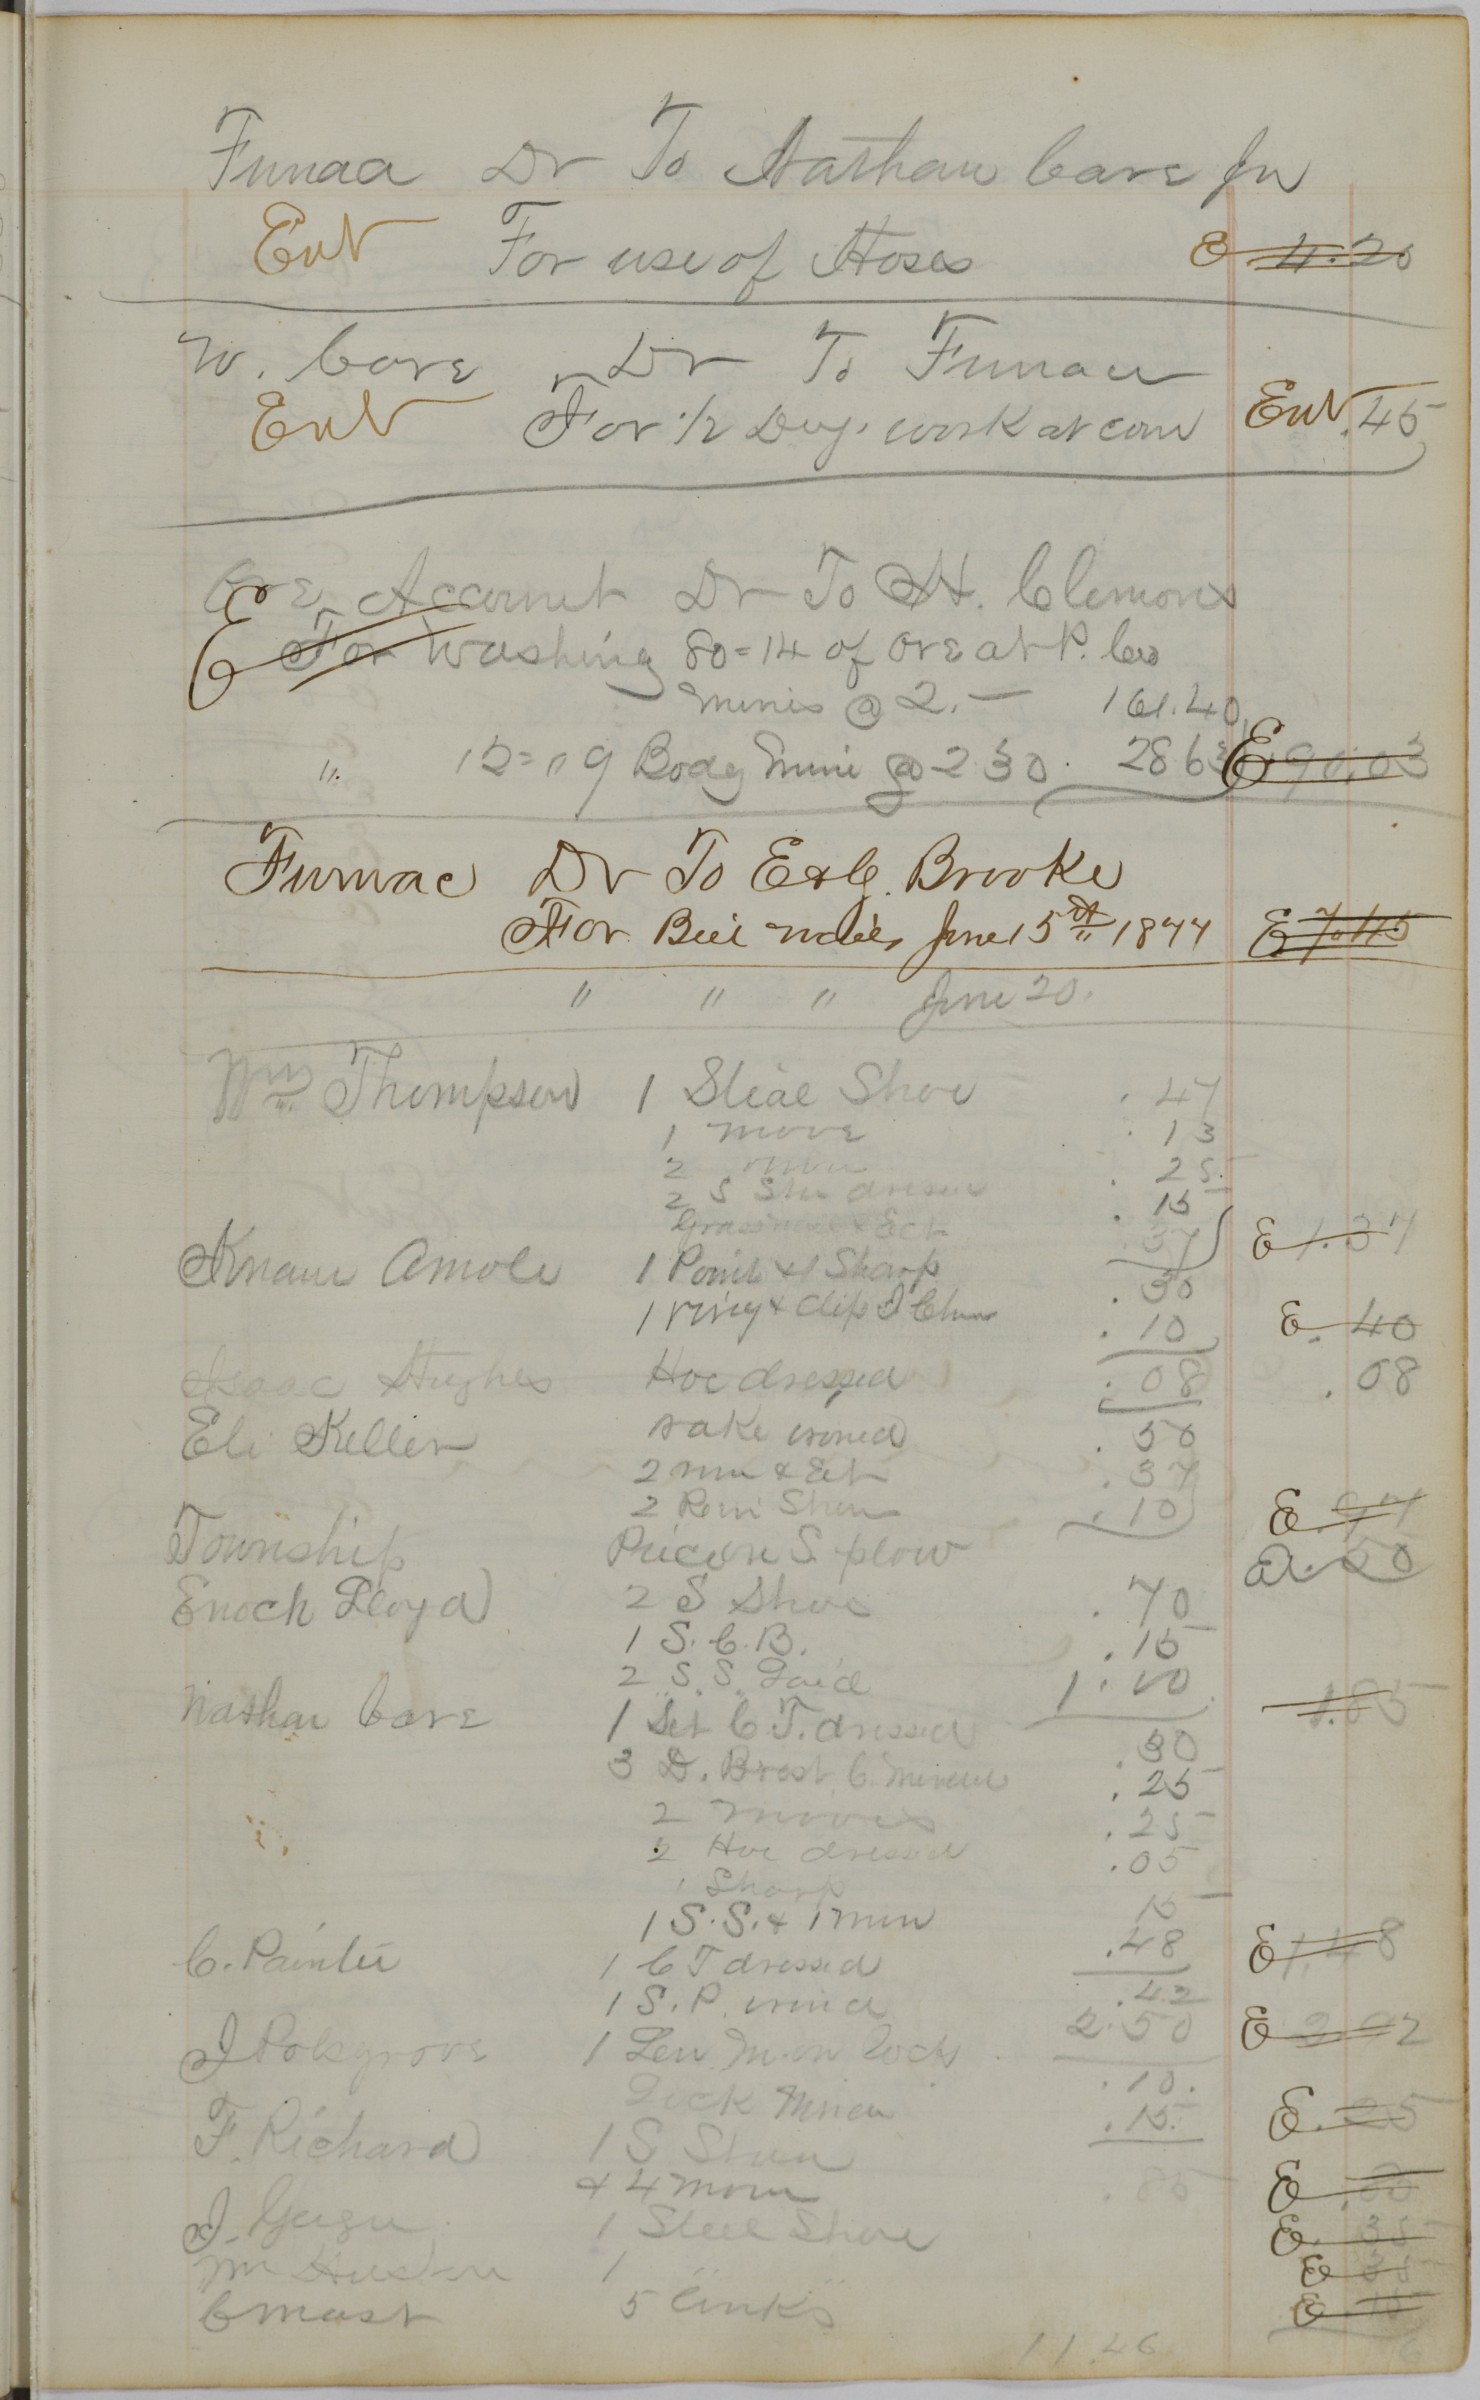 Funaa Dr To Nathan Care Jr
Ent For use of Hoses E 4.20
W. Care Dr To Funace
Ent For 1/2 Days work at corn Ent .45
Ore Accounet Dr To H. Clemons
E For Washing 80=14 of ore at P. Cos
Mines @ 2.— 161.40
" 12=09 Body Mine @ 2 30 28 63 E 190.03
Furnac Dr To E & G. Brooke
For Bill rndes June 15th 1877 E 7.15
" " " June 20.
Wm Thompson 1 Steae Shoe .47
1 move .13
2 25
2 S Shu dressed .15
37 E 1.37
Knauer Amole 1 Point & 1 Sharp .30
1 ring & clip .10 E .40
Isaac Hughes Hoe dressed .08 .08
Eli Keller rake ironed .50
2 mu & Ect .37
2 Rem Shoes .10 E .97
Township S. plow .50
Enoch Floyd 2 S Shoes .70
1 S. C. B. .15
2 S. S. Laid 1.00 1.85
Nathan Care 1 Set C. T. dressed .30
3 D. Brest C. .25
2 moves .25
2 Hoe dressed .05
1 Sharp 15
1 S. S. & 1 mov .48 E 1.48
C. Painter 1 C T dressed .42
1 S. P. ironed 2.50 E 2.92
J Polsgrove 1 .10.
.15. E .25
F. Richard 1 S Shoe
& 4 moves .85 E
J. 1 Steel Shoe E .35
Mr 1 " " E
C Mast 5 links E
11.46